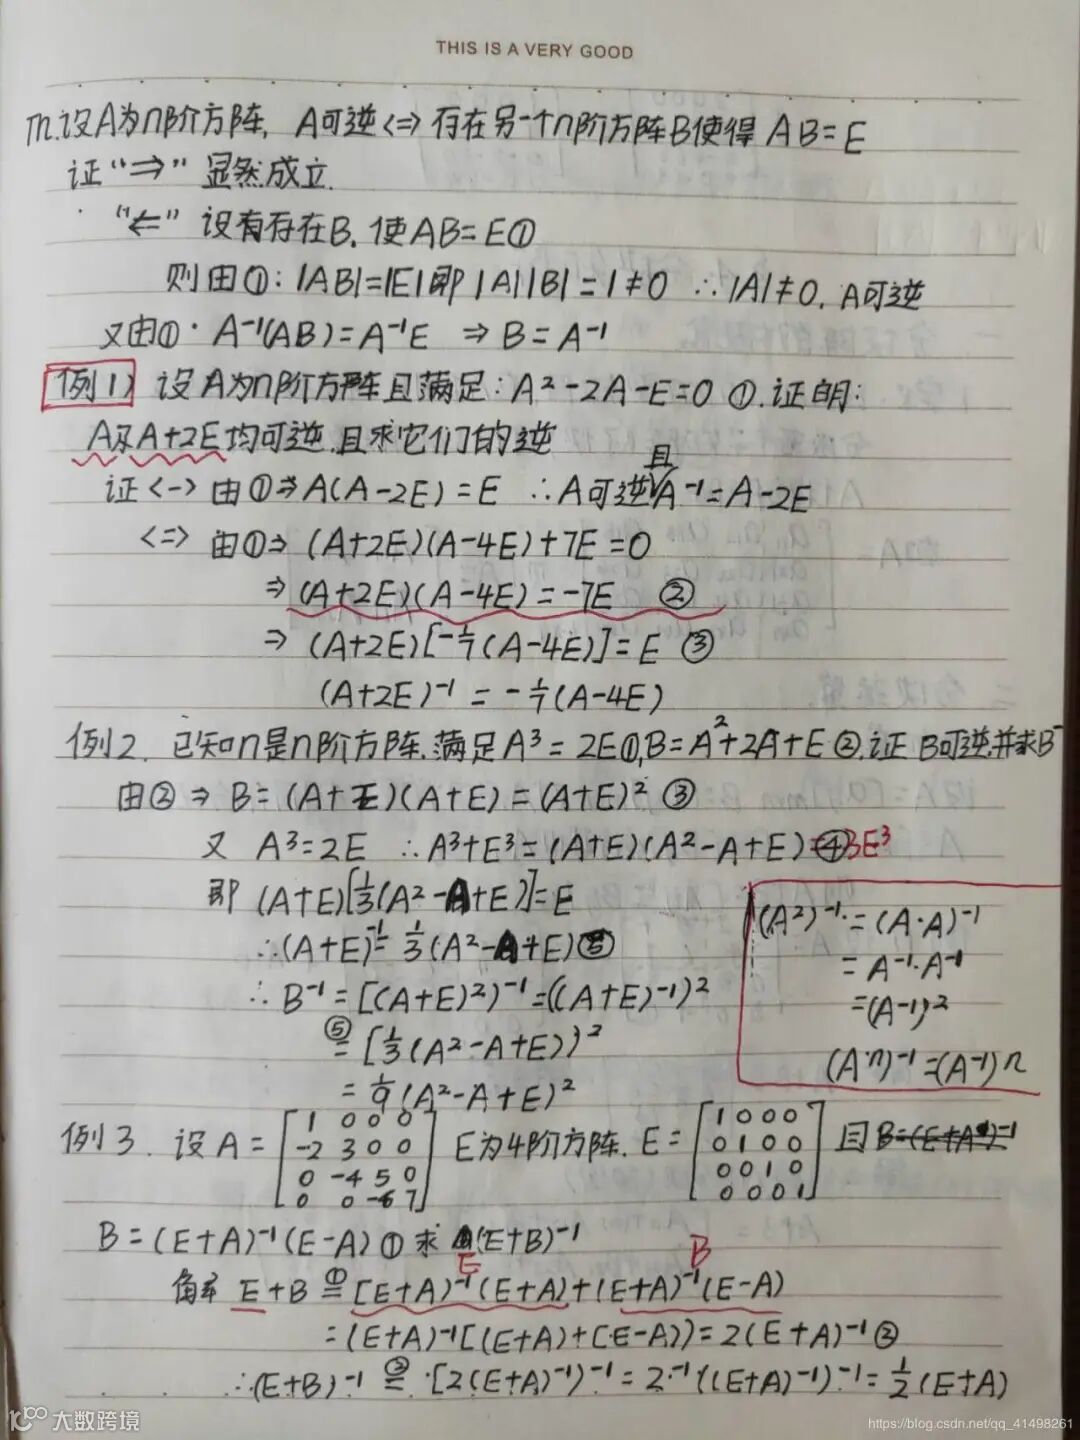 THIS IS A VERY GOOD
Th.设A为n阶方阵, A可逆<=>存在另一个n阶方阵B使得 AB=E
证“⇒”显然成立.
“⇐” 设有存在B.使AB=E①
则由①: |AB|=|E|即|A||B|=1≠0 ∴|A|≠0, A可逆
又由①· A⁻¹(AB)=A⁻¹E ⇒ B=A⁻¹
例1) 设A为n阶方阵且满足: A²-2A-E=0 ①.证明:
A及A+2E均可逆.且求它们的逆
证<-> 由①⇒A(A-2E)=E ∴A可逆且A⁻¹=A-2E
<=> 由①⇒ (A+2E)(A-4E)+7E=0
⇒ (A+2E)(A-4E)=-7E ②
⇒ (A+2E)[-1/7(A-4E)]=E ③
(A+2E)⁻¹ = -1/7(A-4E)
例2. 已知n是n阶方阵.满足A³=2E①,B=A²+2A+E②.证B可逆.并求B⁻
由②⇒ B=(A+E)(A+E)=(A+E)² ③
又 A³=2E ∴A³+E³=(A+E)(A²-A+E)④=3E³
即 (A+E)[1/3(A²-A+E)]=E
∴(A+E)⁻¹=1/3(A²-A+E)⑤
∴B⁻¹=[(A+E)²]⁻¹=((A+E)⁻¹)²
⑤= [1/3(A²-A+E)]²
= 1/9(A²-A+E)²
(A²)⁻¹=(A·A)⁻¹
=A⁻¹·A⁻¹
=(A⁻¹)²
(Aⁿ)⁻¹=(A⁻¹)ⁿ
例3. 设A= [1 0 0 0 E为4阶方阵. E= [1 0 0 0 且B=(E+A)⁻¹
-2 3 0 0 0 1 0 0
0 -4 5 0 0 0 1 0
0 0 -6 7] 0 0 0 1]
B=(E+A)⁻¹(E-A)①求(E+B)⁻¹
E B
解 E+B ①= [E+A)⁻¹(E+A)+(E+A)⁻¹(E-A)
=(E+A)⁻¹[(E+A)+(E-A)]=2(E+A)⁻¹②
∴(E+B)⁻¹ ②= [2(E+A)⁻¹]⁻¹=2⁻¹((E+A)⁻¹)⁻¹=1/2(E+A)
大数跨境
https://blog.csdn.net/qq_41498261